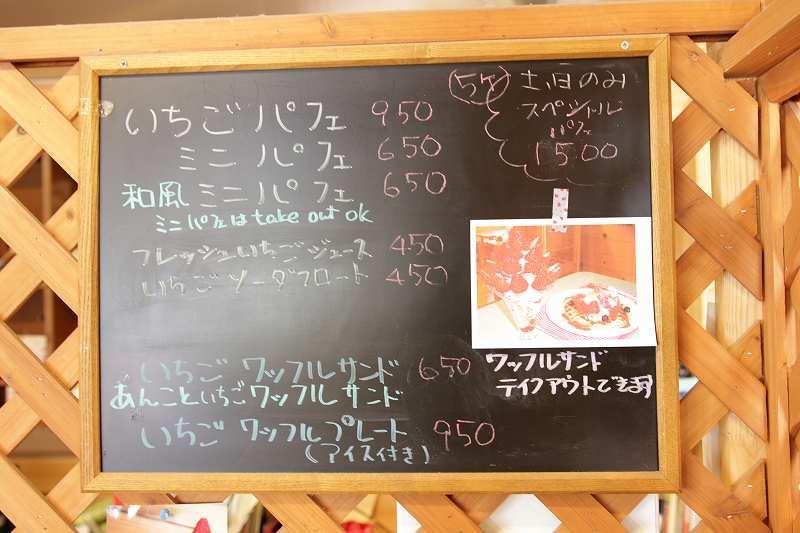 いちごパフェ 950
ミニパフェ 650
和風ミニパフェ 650
ミニパフェは take out ok
フレッシュいちごジュース 450
いちごソーダフロート 450
いちごワッフルサンド 650
あんこといちごワッフルサンド
いちごワッフルプレート 950
(アイス付き)
土、日のみ
スペシャル
パフェ
1500
ワッフルサンド
テイクアウトできます